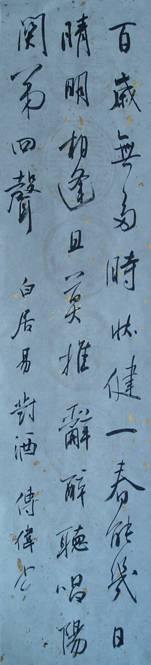 百歲無多時壯健一春能幾日
晴明相逢且莫推辭醉聽唱陽
關第四聲 白居易對酒 傅偉